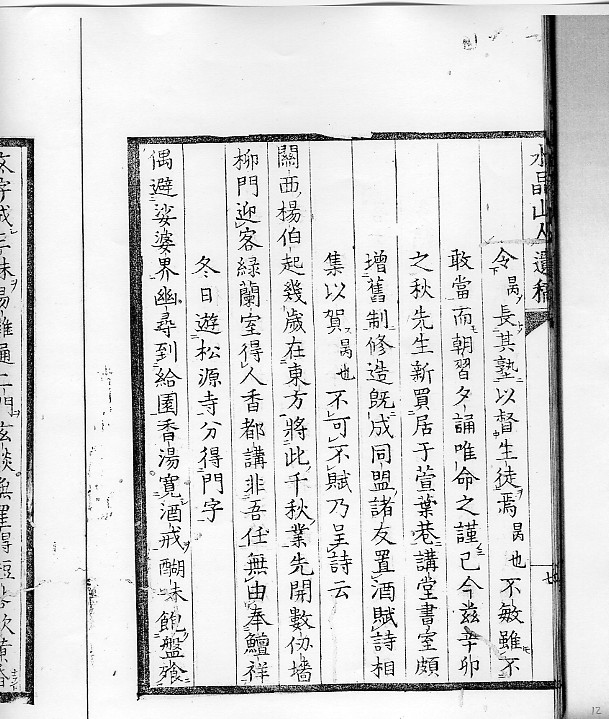 水晶山人遺稿
令嵓長其塾以督生徒焉嵓也不敏雖不
敢當而朝習夕誦唯命之謹已今茲辛卯
之秋先生新買居于萱葉巷講堂書室頗
增舊制修造既成同盟諸友置酒賦詩相
集以賀嵓也不可不賦乃呈詩云
關西楊伯起幾歲在東方將此千秋業先開數仞墻
柳門迎客綠蘭室得人香都講非吾任無由奉鱣祥
冬日遊松源寺分得門字
偶避娑婆界幽尋到給園香湯寬酒戒醐味飽盤飧
文字戒三昧易離遍二門玄談無
七
12